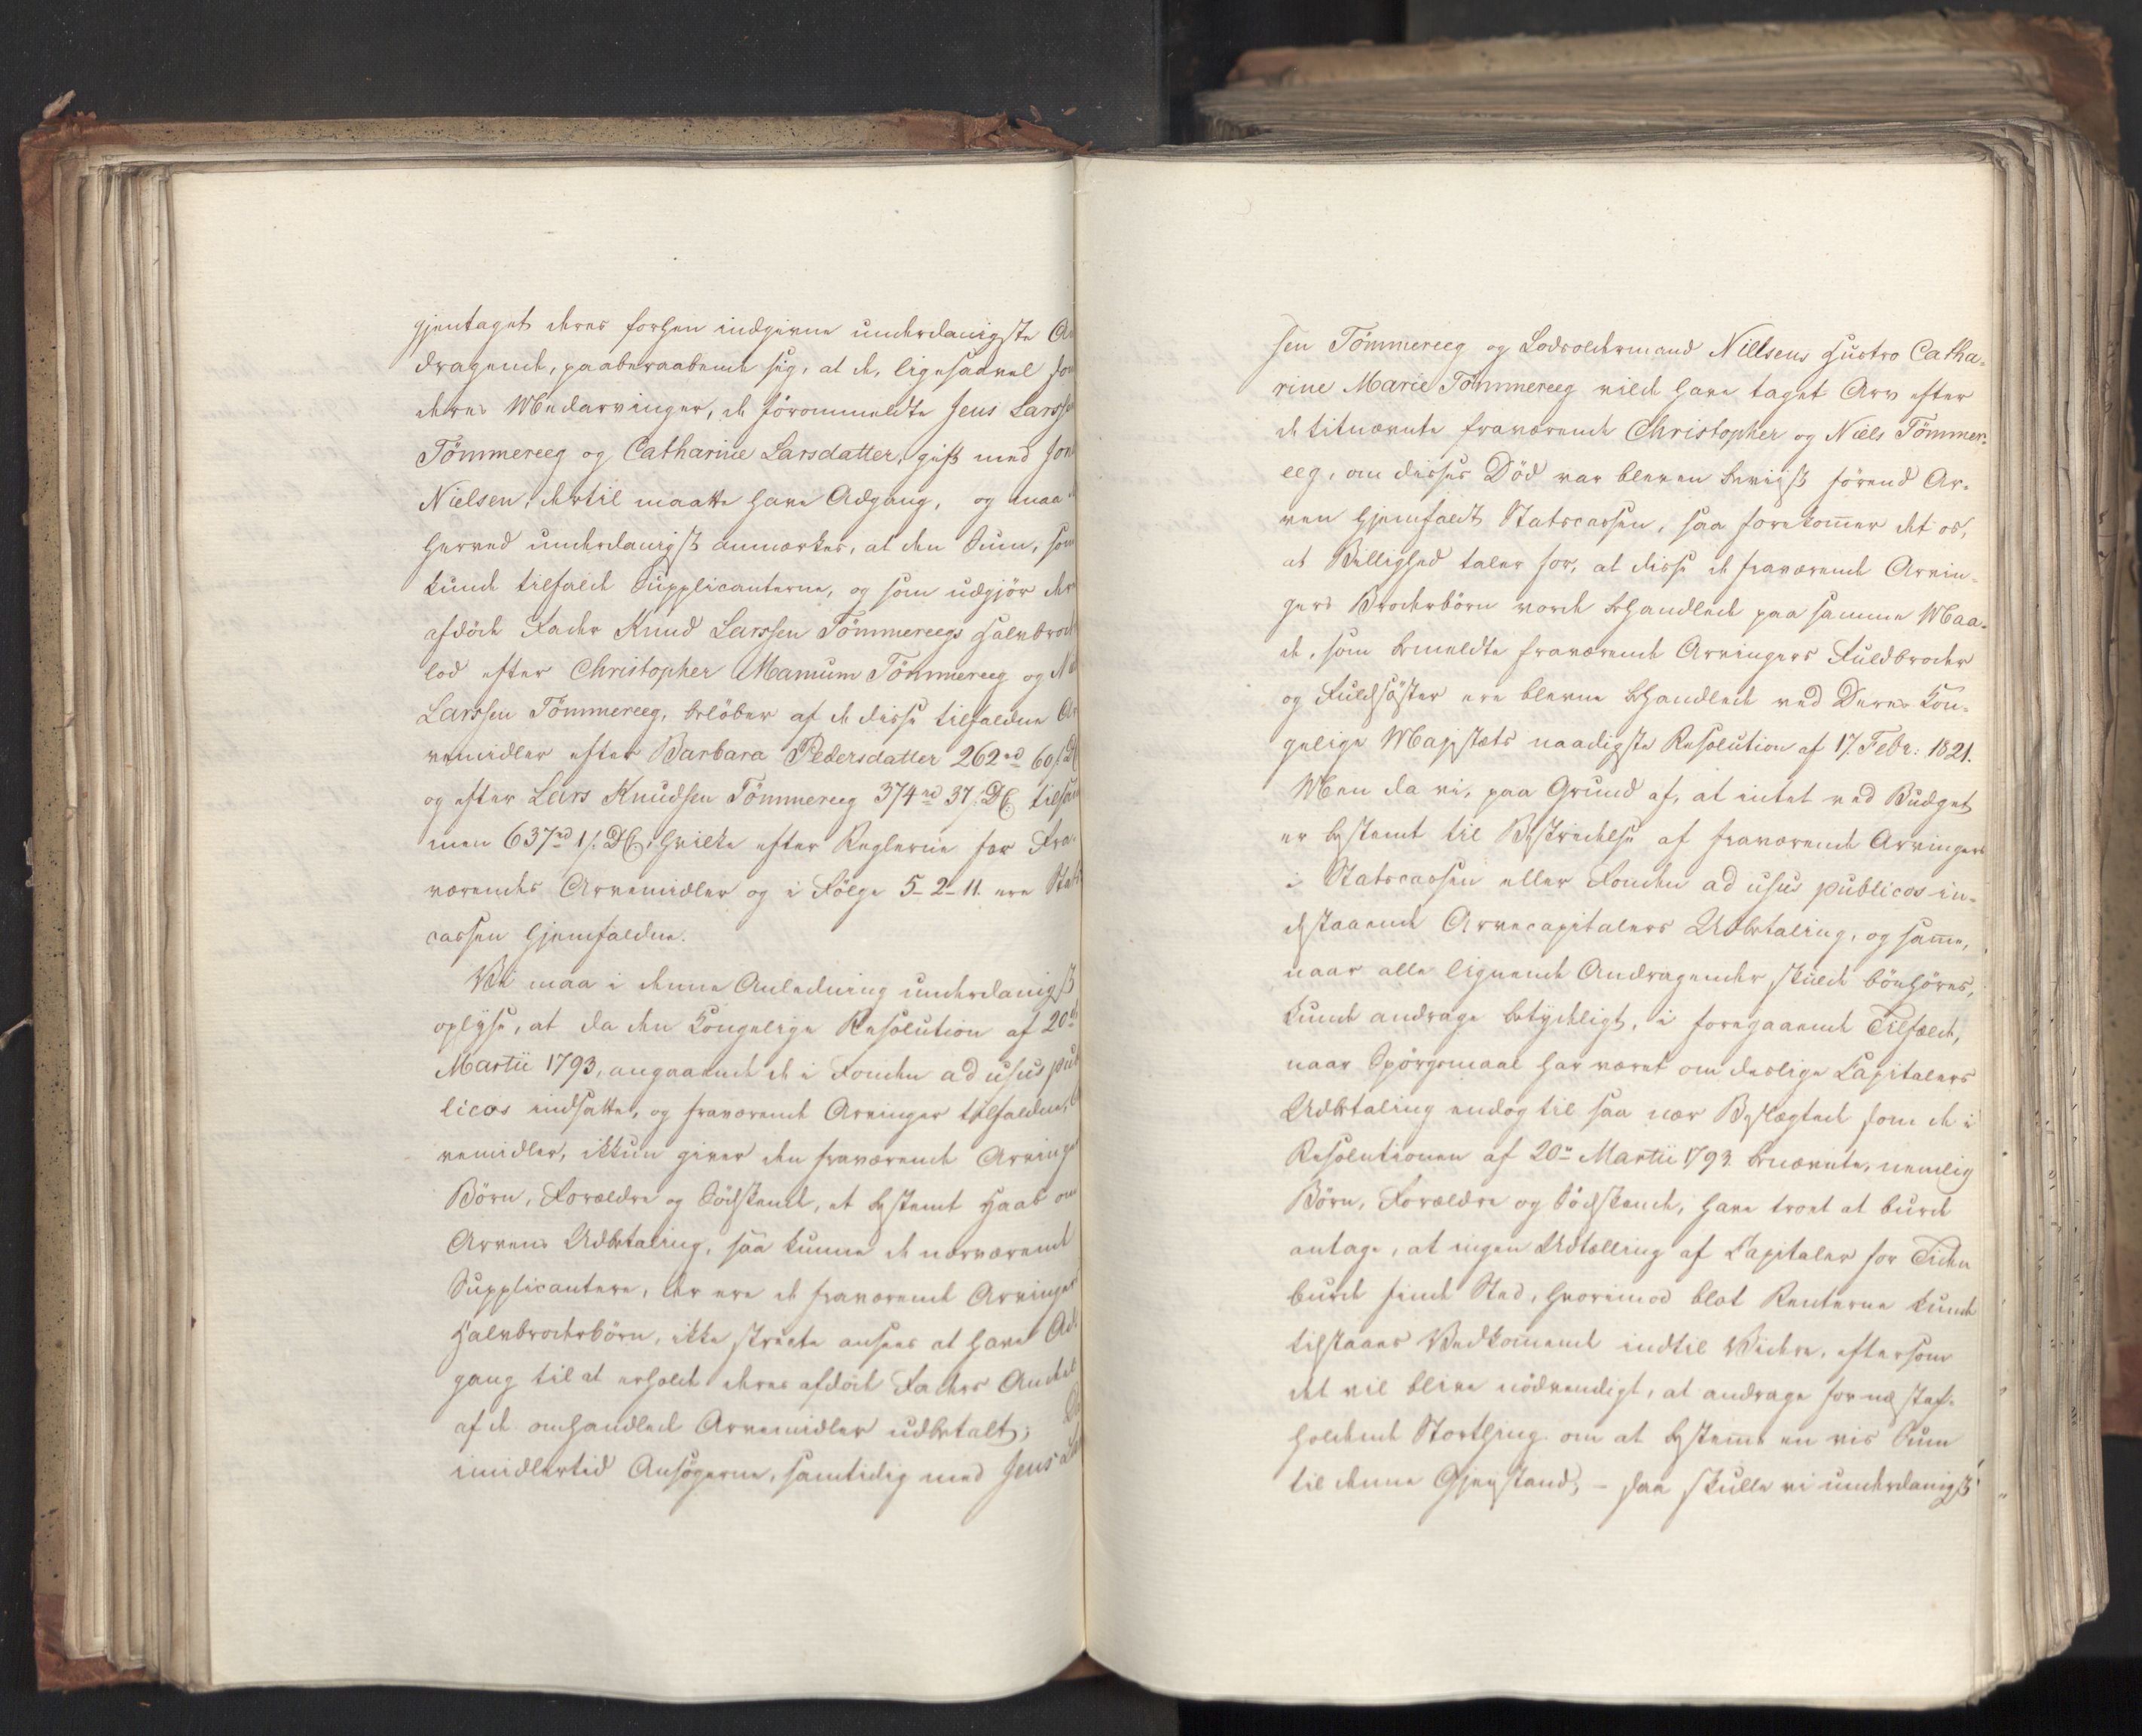 gjentaget deres forhen indgivne underdanigste An
dragende, paaberaabende sig, at de, ligesaavel som
deres Medarvinger, de förommeldte Jens Larssen
Tömmereeg og Catharine Larsdatter, gift med Jon
Nielsen, dertil maatte have Adgang, og maa d
herved underdanigst anmærkes, at den Sum, som
kunde tilfalde Supplicanterne, og som udgjör der
afdöde Fader Knud Larssen Tömmereegs Halvbrod
lod efter Christopher Mamum Tömmereeg og Ni
Larssen Tömmereeg, belöber af de disse tilfaldne Ar
vemidler efter Barbara Pedersdatter 262 rd 60 s. D C
og efter Lars Knudsen Tömmereeg 374 rd 37 s. D C tilsam
men 637 rd 1 s. D C, hvilke efter Reglerne for Fra-
værendes Arvemidler og i Fölge 5-2-11. ere Stats
cassen hjemfaldne.
Vi maa i denne Anledning underdanigst
oplyse, at da den Kongelige Resolution af 20de
Martii 1793, angaaende de i Fonden ad usus pub
licos indsatte, og fraværende Arvinger tilfaldne, A
vemidler, ikkun giver den fraværende Arvinge
Börn, Forældre og Södskende, et bestemt Haab om
Arvens Udbetaling, saa kunne de nærværende
Supplicantere, der ere de fraværende Arvinger
Halvbroderbörn, ikke strikte ansees at have Ad-
gang til at erholde deres afdöde Faders Andel
af de omhandlede Arvemidler udbetalt; Da
imidlertid Ansögerne, samtidig med Jens La
sen Tömmereeg og Lodsoldermand Nillsens Hustro Catha-
rine Marie Tömmereeg vilde have taget Arv efter
de titnævnte fraværende Christopher og Niels Tömmer-
eeg, om disses Död var bleven beviist förend Ar-
ven hjemfaldt Statscassen, saa forekommer det os,
at Billighed taler for, at disse de fraværende Arvin-
gers Broderbörn vorde behandlede paa samme Maa-
de, som bemeldte fraværende Arvingers Fuldbroder
og Fuldsöster ere blevne behandlede ved Deres Kon-
gelige Majestæts naadigste Resolution af 17. Febr: 1821.
Men da vi, paa Grund af, at intet ved Budget
er bestemt til Bestridelse af fraværende Arvingers
i Statscassen eller Fonden ad usus publicos in-
destaaende Arvecapitalers Udbetaling, og samme,
naar alle lignende Andragender skulde bönhöres,
kunde andrage betydeligt, i foregaaende Tilfælde,
naar Spörgsmaal har været om deslige Capitalers
Udbetaling endog til saa nær Beslægtede som de i
Resolutionen af 20de Martii 1793. benævnte, nemlig
Börn, Forældre og Södskende, have troet at burde
antage, at ingen Udtælling af Capitaler for Tiden
burde finde Sted, hvorimod blot Renterne kunde
tilstaaes Vedkommende indtil Videre, eftersom
det vil blive nödvendigt, at andrage for næstaf-
holdende Storthing om at bestemme en vis Sum
til denne Gjenstand, - saa skulle vi underdanigst